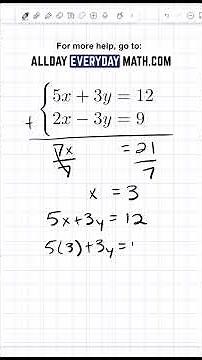 For more help, go to:
ALLDAY EVERYDAY MATH.COM
5x + 3y = 12
+ 2x − 3y = 9
7x/7 = 21/7
x = 3
5x + 3y = 12
5(3) + 3y =